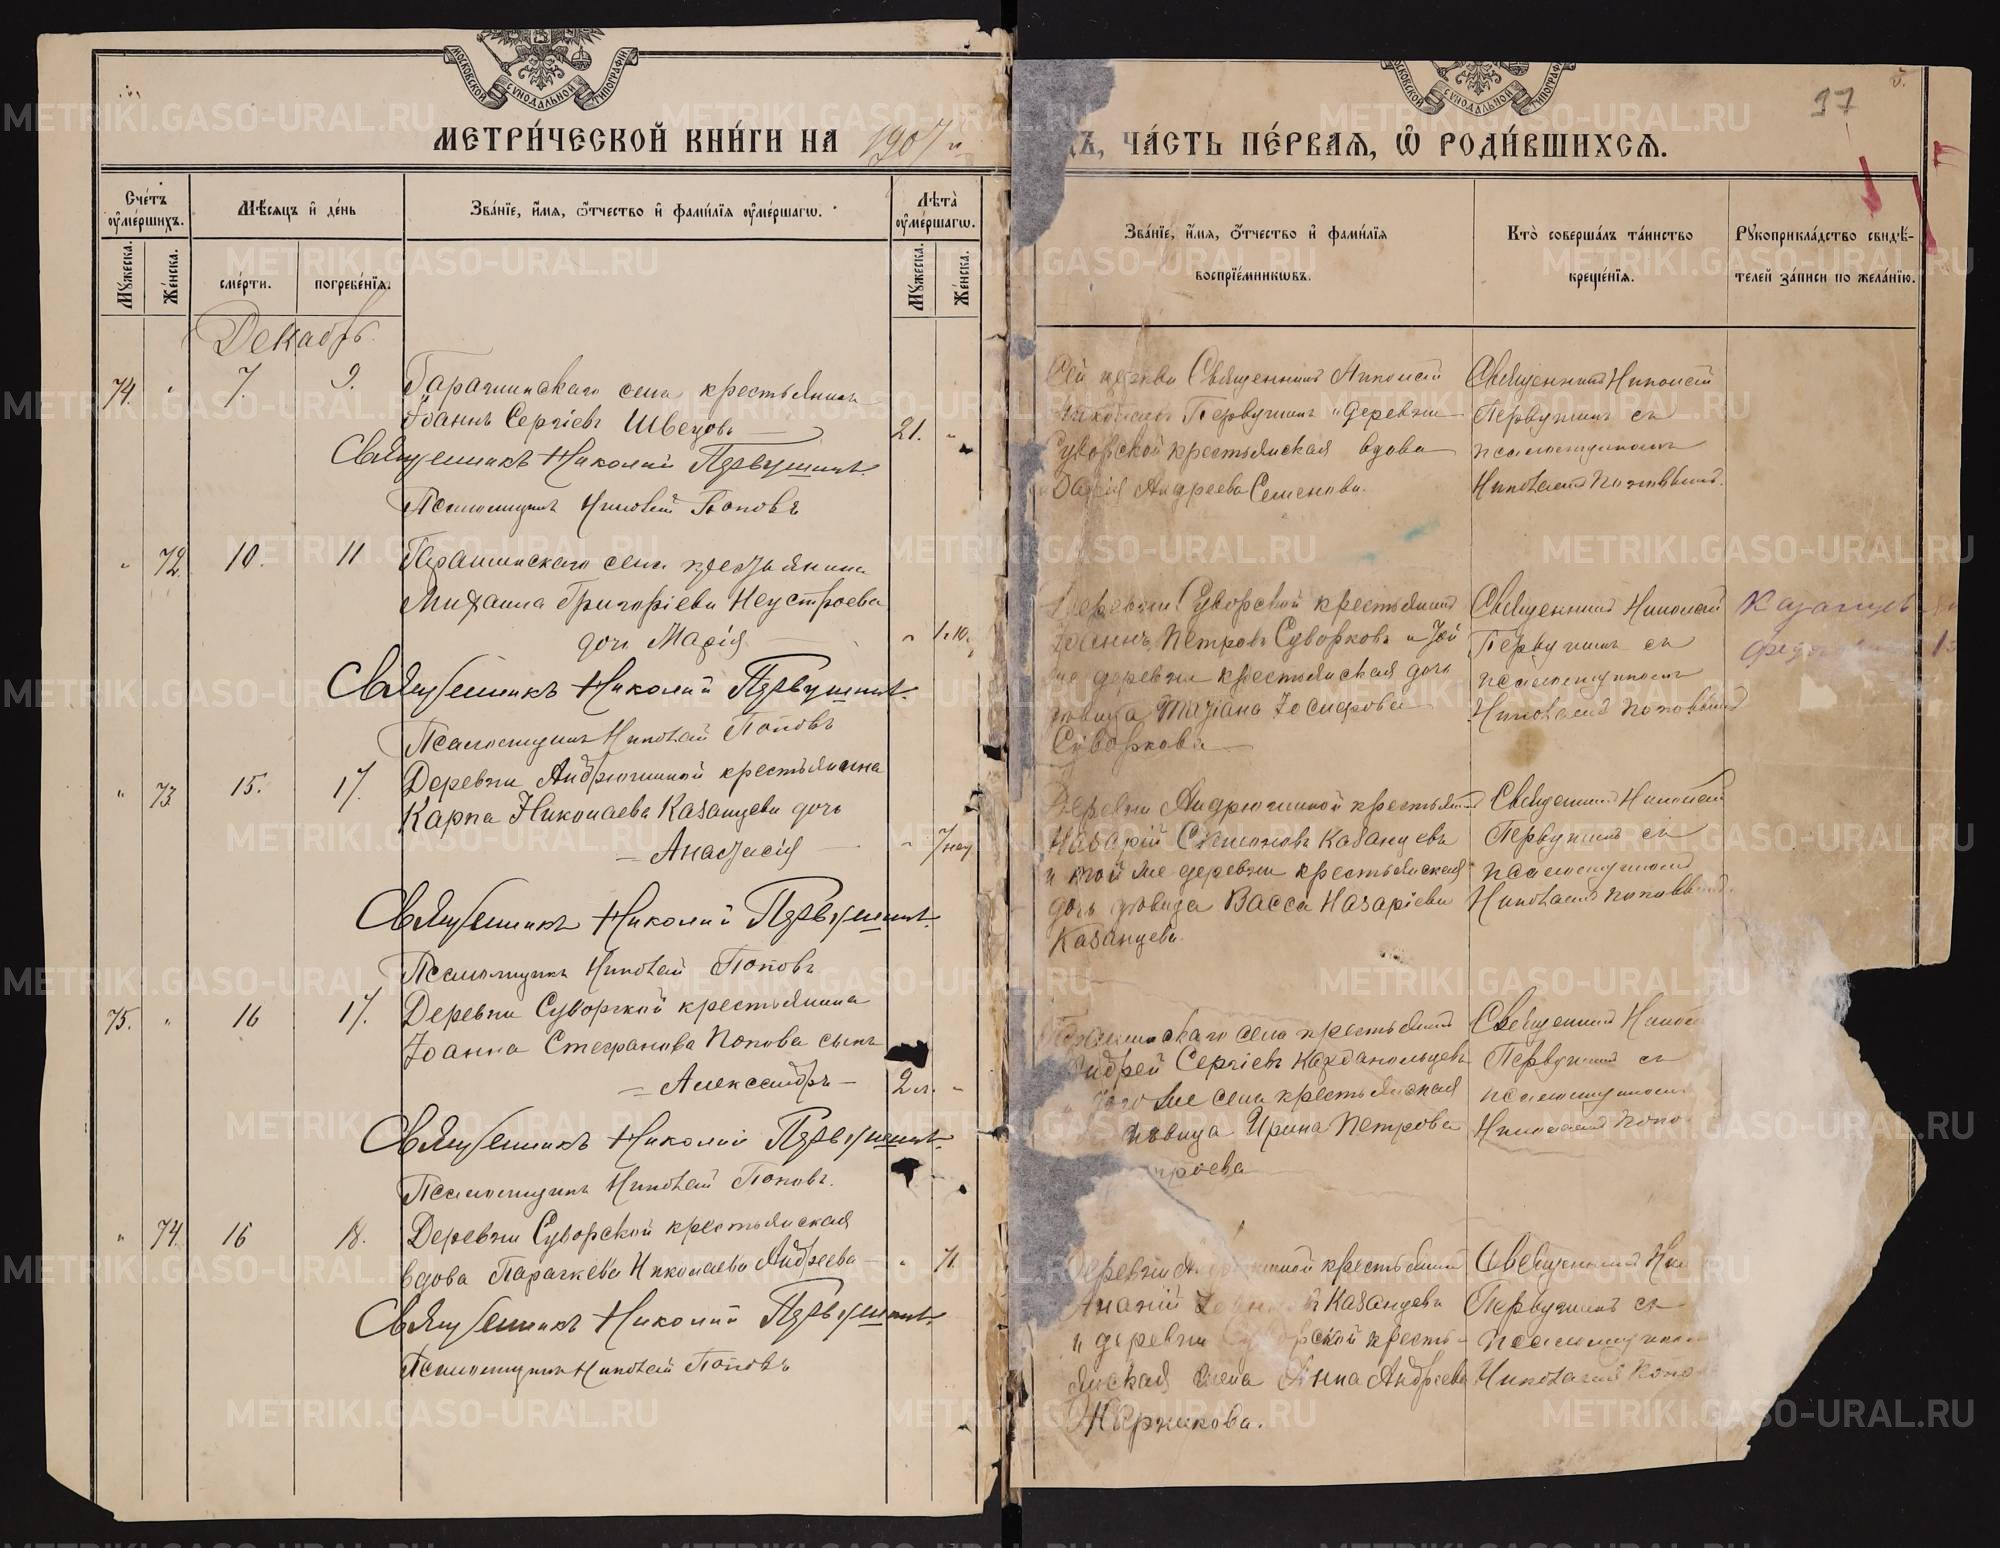 МОСКОВСКОЙ СѴНОДАЛЬНОЙ ТИПОГРАФІИ
МЕТРИ́ЧЕСКОЙ КНИ́ГИ НА 1907 г.
Сче́тъ ᲂу҆ме́ршихъ.
Мѣ́сяцъ и҆ де́нь
Зва́нїе, и҆́мя, ѻ҆́тчество и҆ фамі́лїя ᲂу҆ме́ршагѡ.
Лѣ́та ᲂу҆ме́ршагѡ.
Мꙋжеска. Же́нска. сме́рти. погребе́нїя. Мꙋжеска. Же́нска.
Декабрь.
74. " 7. 9. Парашинскаго села крестьянинъ
Іоаннъ Сергіевъ Швецовъ 21. "
Священникъ Николай Первушинъ.
Псаломщикъ Николай Поповъ
" 72. 10. 11 Парашинскаго села крестьянина
Михаила Григоріева Неустроева
дочь Марія " 1.10.
Священникъ Николай Первушинъ.
Псаломщикъ Николай Поповъ
" 73. 15. 17. Деревни Андрюшиной крестьянина
Карпа Николаева Казанцева дочь
Анастасія " 7 нед
Священникъ Николай Первушинъ.
Псаломщикъ Николай Поповъ
75. " 16 17. Деревни Суворской крестьянина
Іоанна Стефанова Попова сынъ
Александръ 2 "
Священникъ Николай Первушинъ.
Псаломщикъ Николай Поповъ.
" 74. 16 18. Деревни Суворской крестьянская
вдова Параскева Николаева Андреева " 71.
Священникъ Николай Первушинъ.
Псаломщикъ Николай Поповъ
МОСКОВСКОЙ СѴНОДАЛЬНОЙ ТИПОГРАФІИ
97
ЧА́СТЬ ПЕ́РВАЯ, Ѡ҆ РОДИ́ВШИХСЯ.
Зва́нїе, и҆́мя, ѻ҆́тчество и҆ фамі́лїя воспрїе́мникѡвъ.
Кто̀ соверша́лъ та́инство креще́нїя.
Рꙋкоприкла́дство свидѣ́телей за́писи по жела́нїю.
Сей церкви Священникъ Николай
Первушинъ и деревни
Суворской крестьянская вдова
Дарія Андреева Семенова.
Священникъ Николай
Первушинъ съ
псаломщикомъ
Николаемъ Поповымъ.
Деревни Суворской крестьянинъ
Іоаннъ Петровъ Суворковъ и той
же деревни крестьянская дочь
девица Татіана Іосифова
Суворкова
Священникъ Николай
Первушинъ съ
псаломщикомъ
Николаемъ Поповымъ
Казанцев
Деревни Андрюшиной крестьянинъ
Назарій Симоновъ Казанцевъ
и той же деревни крестьянская
дочь девица Васса Назаріева
Казанцева.
Священникъ Николай
Первушинъ съ
псаломщикомъ
Николаемъ Поповымъ.
села крестьянинъ
Андрей Сергіевъ
и того же села крестьянская
девица Ирина Петрова
Священникъ
Первушинъ съ
псаломщикомъ
Николаемъ Попо
Деревни крестьянинъ
Ананій Казанцевъ
и деревни Суворской кресть-
янская жена Анна Андреева
Священникъ Ник
Первушинъ съ
псаломщикомъ
Николаемъ Попо
METRIKI.GASO-URAL.RU